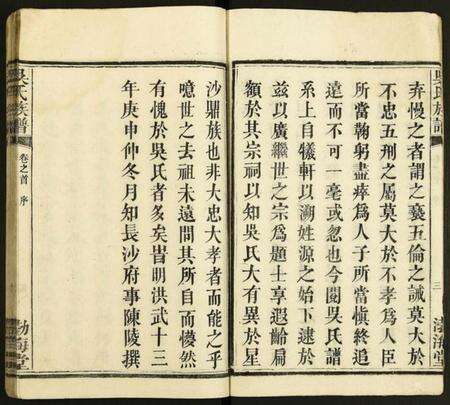 吳氏族譜
三
渤海堂
弃慢之者謂之褻五倫之誡莫大於
不忠五刑之屬莫大於不孝爲人臣
所當鞠躬盡瘁爲人子所當愼終追
遠而不可一毫或忽也今閱吳氏譜
系上自犠軒以溯姓源之始下逮於
玆以廣繼世之宗爲題士享遐齡扁
額於其宗祠以知吳氏大有異於星
沙鼎族也非大忠大孝者而能之乎
噫世之去祖未遠問其所自而懜然
有愧於吳氏者多矣皆明洪武十三
年庚申仲冬月知長沙府事陳陵撰
吳氏族譜
卷之首 序
渤海堂